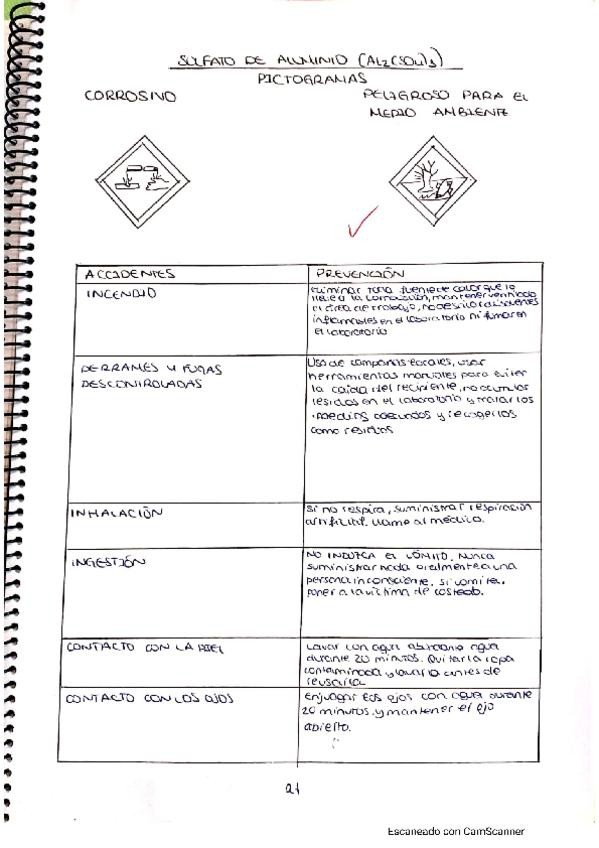 SULFATO DE ALUMINIO (Al2(SO4)3)
PICTOGRAMAS
CORROSIVO
PELIGROSO PARA EL
MEDIO AMBIENTE
ACCIDENTES
PREVENCIÓN
INCENDIO
Eliminar toda fuente de calor que lo
lleve a la combustión, mantener ventilado
el área de trabajo, no
inflamables en el laboratorio ni fumar en
el laboratorio
DERRAMES Y FUGAS
DESCONTROLADAS
Uso de campanas locales, usar
herramientas manuales para evitar
la caída del recipiente, no acumular
residuos en el laboratorio y
medios adecuados y recogerlos
como residuos
INHALACIÓN
Si no respira, suministrar respiración
artificial. Llame al médico.
INGESTIÓN
NO INDUZCA EL VÓMITO. Nunca
suministrar nada oralmente a una
persona inconsciente. Si vomita,
poner a la víctima de costado.
CONTACTO CON LA PIEL
Lavar con agua abundante agua
durante 20 minutos. Quitar la ropa
contaminada y lavarla antes de
reusarla
CONTACTO CON LOS OJOS
Enjuagar los ojos con agua durante
20 minutos y mantener el ojo
abierto.
21
Escaneado con CamScanner